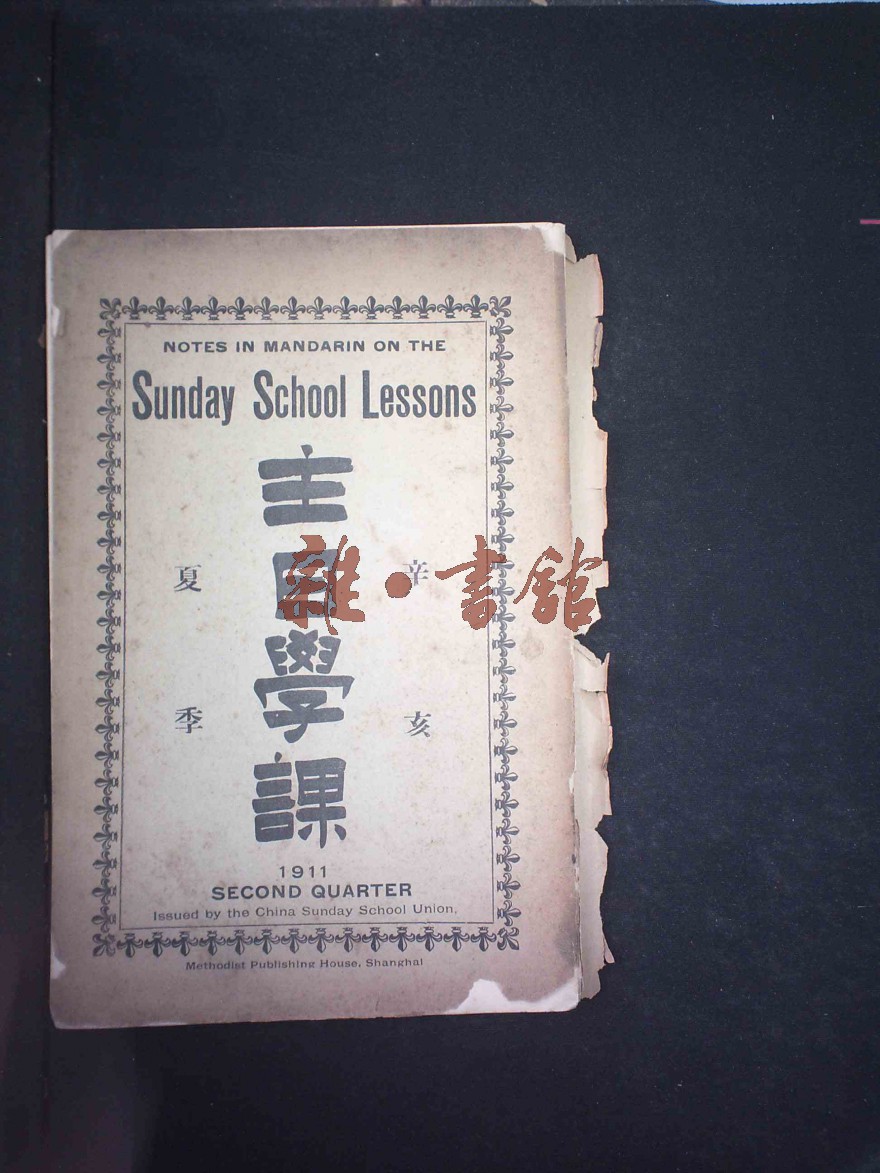 NOTES IN MANDARIN ON THE
Sunday School Lessons
辛亥
主日學課
夏季
雜·書館
1911
SECOND QUARTER
Issued by the China Sunday School Union,
Methodist Publishing House, Shanghai